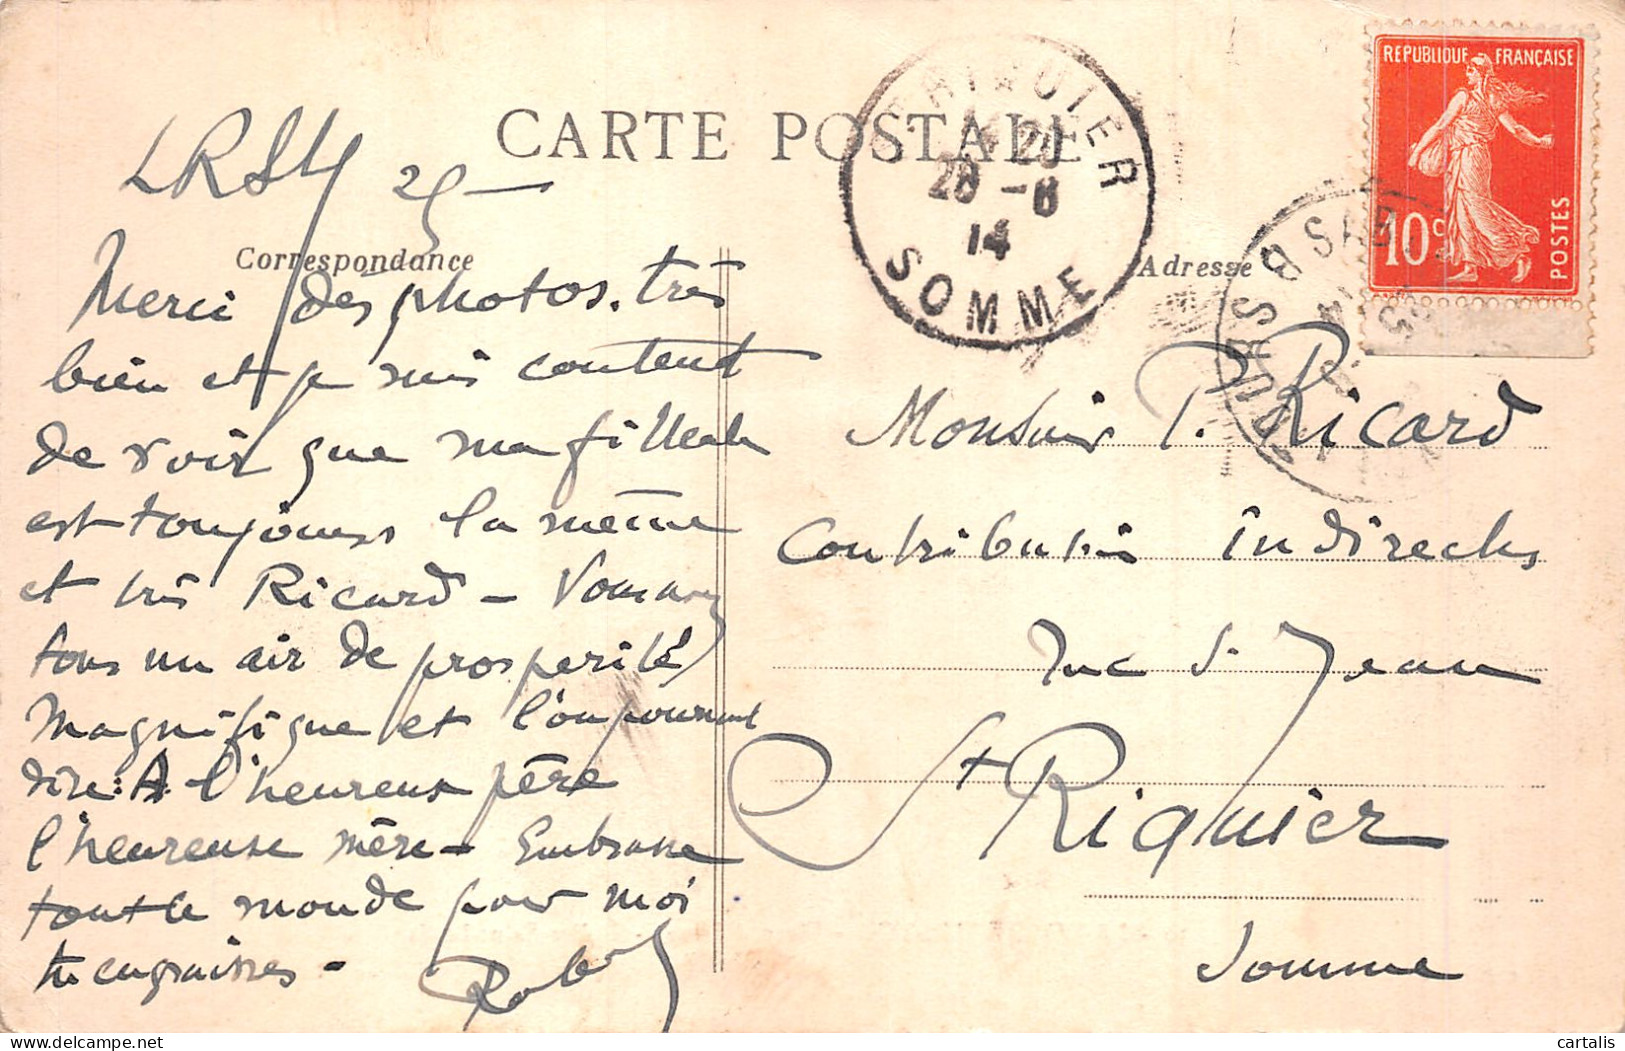 CARTE POSTALE
Correspondance
Adresse
REPUBLIQUE FRANÇAISE
10c
POSTES
ST RIQUIER
20
28 - 6
14
SOMME
25 —
Merci des photos. très
bien et je suis content
de voir que ma filleule
est toujours la même
et très Ricard — Vous avez
tous un air de prosperité
magnifique et l'on pourrait
dire: A l'heureux père
l'heureuse mère — Embrasse
tout le monde pour moi
tu engraisses —
Robert
Monsieur P. Ricard
Contributions indirectes
rue St Jean
St Riquier
Somme
cartalis
delcampe.net